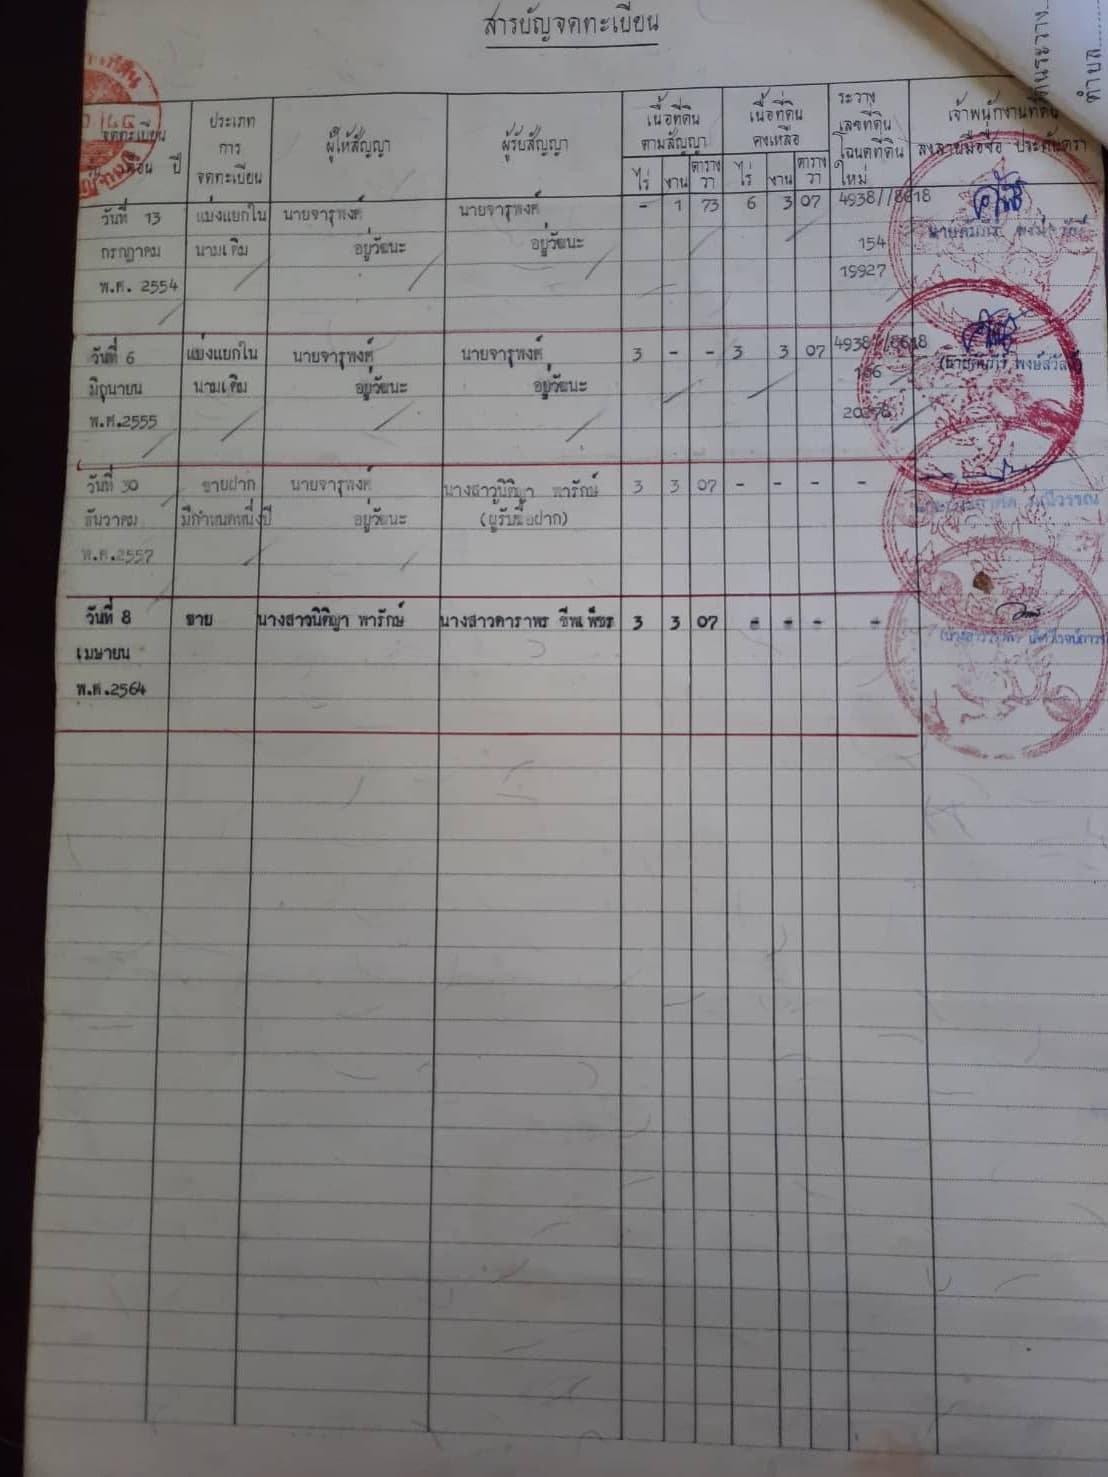 สารบัญจดทะเบียน
จดทะเบียน
เดือน ปี
ประเภท
การ
จดทะเบียน
ผู้ให้สัญญา
ผู้รับสัญญา
เนื้อที่ดิน
ตามสัญญา
ไร่ งาน ตาราง
วา
เนื้อที่ดิน
คงเหลือ
ไร่ งาน ตาราง
วา
ระวาง
เลขที่ดิน
โฉนดที่ดิน
ใหม่
เจ้าพนักงานที่ดิน
ลงลายมือชื่อ ประทับตรา
ระวาง
ตำบล
วันที่ 13 แบ่งแยกใน นายจารุพงศ์ นายจารุพงศ์ - 1 73 6 3 07 4938//8618
กรกฎาคม นามเดิม อยู่วัฒนะ อยู่วัฒนะ 154
พ.ศ. 2554 19927
วันที่ 6 แบ่งแยกใน นายจารุพงศ์ นายจารุพงศ์ 3 - - 3 3 07 4938//8618
มิถุนายน นามเดิม อยู่วัฒนะ อยู่วัฒนะ 166 พงษ์สวัสดิ์
พ.ศ.2555
วันที่ 30 ขายฝาก นายจารุพงศ์ นางสาวนิติญา พารักษ์ 3 3 07 - - - -
ธันวาคม มีกำหนดหนึ่งปี อยู่วัฒนะ (ผู้รับซื้อฝาก)
พ.ศ.2557
วันที่ 8 ขาย นางสาวนิติญา พารักษ์ นางสาวดาราพร ชีพเพ็ชร 3 3 07 - - - -
เมษายน
พ.ศ.2564